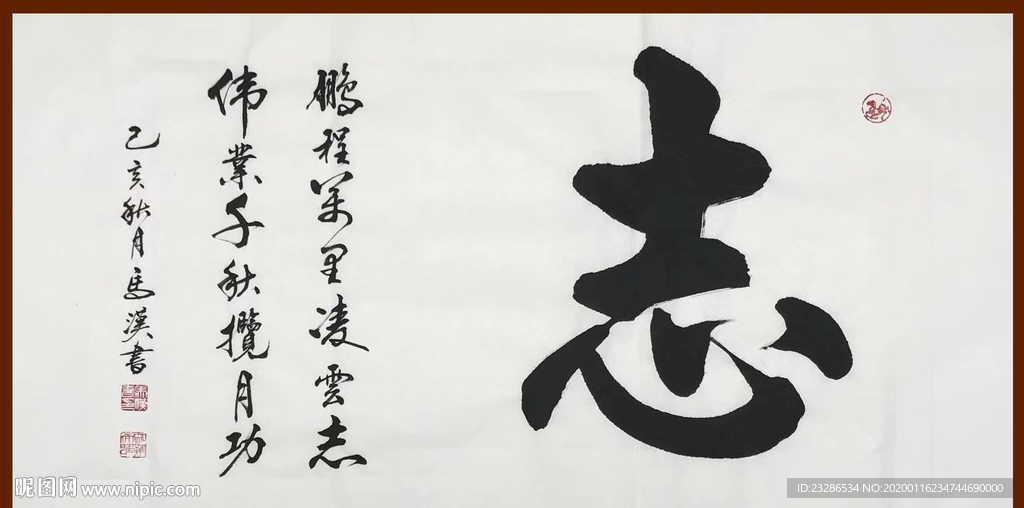 志
鹏程萬里凌雲志
伟業千秋攬月功
己亥秋月馬漢書
昵图网 www.nipic.com
ID:23286534 NO:20200116234744690000